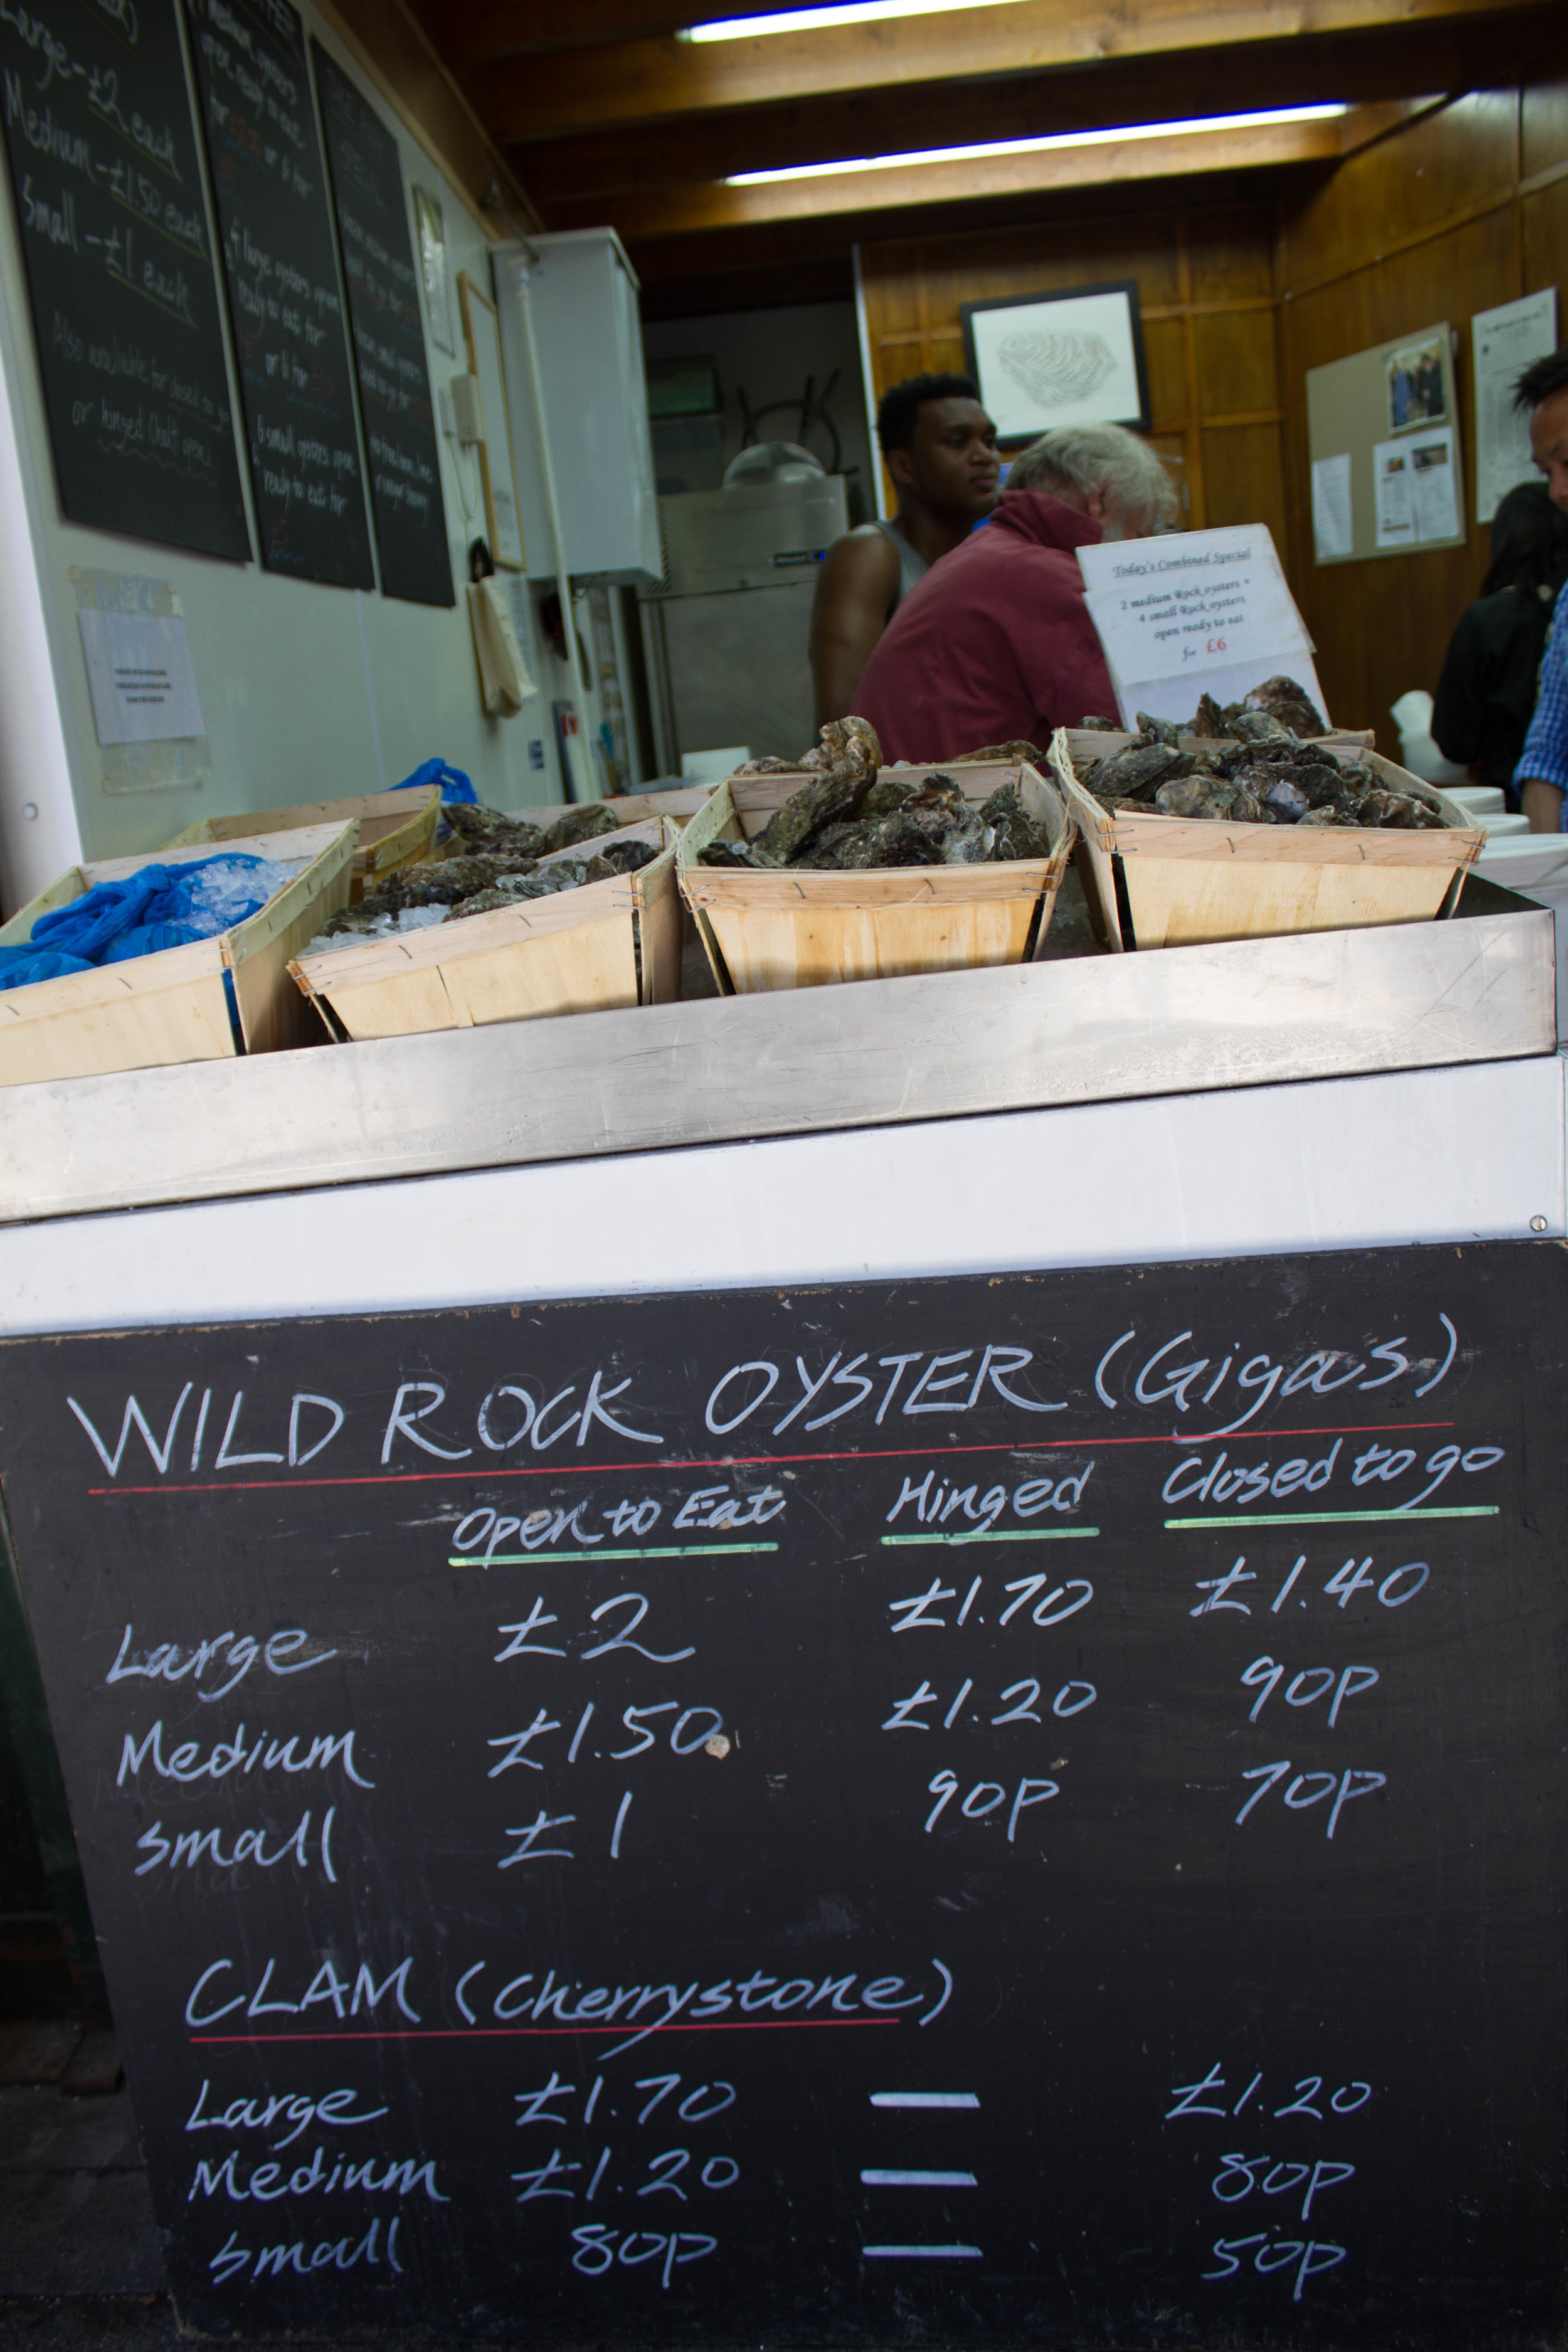 Large - £2 each
Medium - £1.50 each
Small - £1 each
Also available for closed to go
or hinged (half open)
open ready to eat
for or 6 for
4 large oysters open
ready to eat for
or 6 for
6 small oysters open
ready to eat for
£5
Today's Combined Special
2 medium Rock oysters +
4 small Rock oysters
open ready to eat
for £6
WILD ROCK OYSTER (Gigas)
Open to Eat Hinged Closed to go
Large £2 £1.70 £1.40
Medium £1.50 £1.20 90p
Small £1 90p 70p
CLAM (Cherrystone)
Large £1.70 — £1.20
Medium £1.20 — 80p
Small 80p — 50p